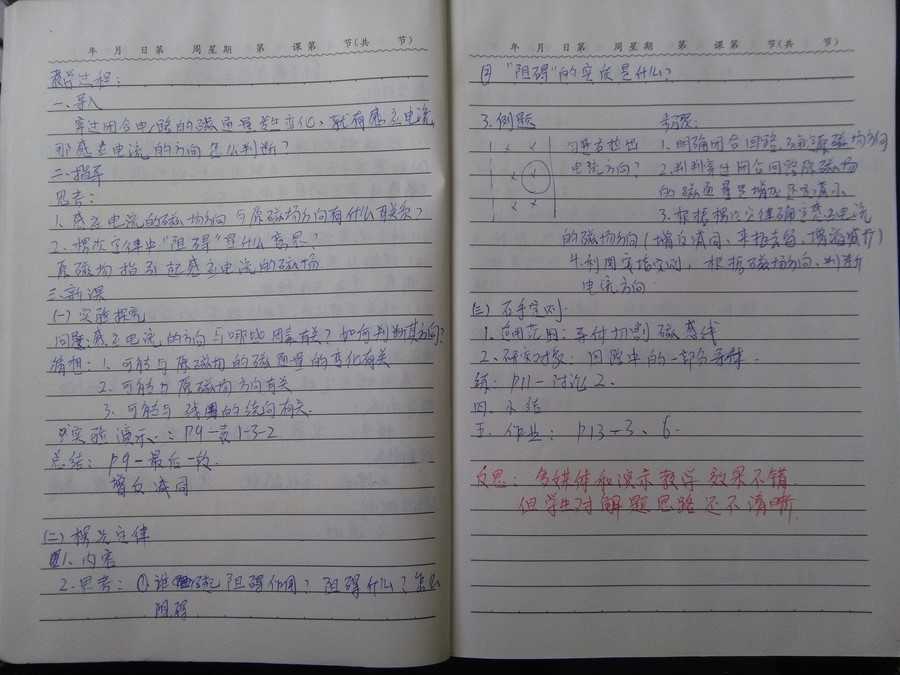 年 月 日第 周星期 第 课第 节(共 节)
教学过程:
一.导入
穿过闭合电路的磁通量发生变化,就有感应电流
那感应电流的方向怎么判断?
二.指导
思考:
1.感应电流的磁场方向与原磁场方向有什么关系?
2.楞次定律中"阻碍"是什么意思?
原磁场指引起感应电流的磁场
三.新课
(一)实验探究
问题:感应电流的方向与哪些因素有关?如何判断其方向?
猜想:1.可能与原磁场的磁通量的变化有关
2.可能与原磁场方向有关
3.可能与线圈的绕向有关.
实验演示:P9-表1-3-2
总结:P9-最后一段.
增反减同
(二)楞次定律
1.内容
2.思考:①谁起阻碍作用?阻碍什么?怎么
阻碍
年 月 日第 周星期 第 课第 节(共 节)
"阻碍"的实质是什么?
3.例题 步骤:
匀速右拉出 1.明确闭合回路,及原磁场方向
电流方向? 2.判断穿过闭合回路原磁场
的磁通量是增大还是减小.
3.根据楞次定律确定感应电流
的磁场方向(增反减同、来拒去留、增缩减扩)
4.利用安培定则,根据磁场方向,判断
电流方向.
(三)右手定则.
1.适用范围:导体切割磁感线
2.研究对象:回路中的一部分导体.
练:P11-讨论2.
四.小结
五.作业:P13-3、6.
反思:多媒体和演示教学效果不错.
但学生对解题思路还不清晰.